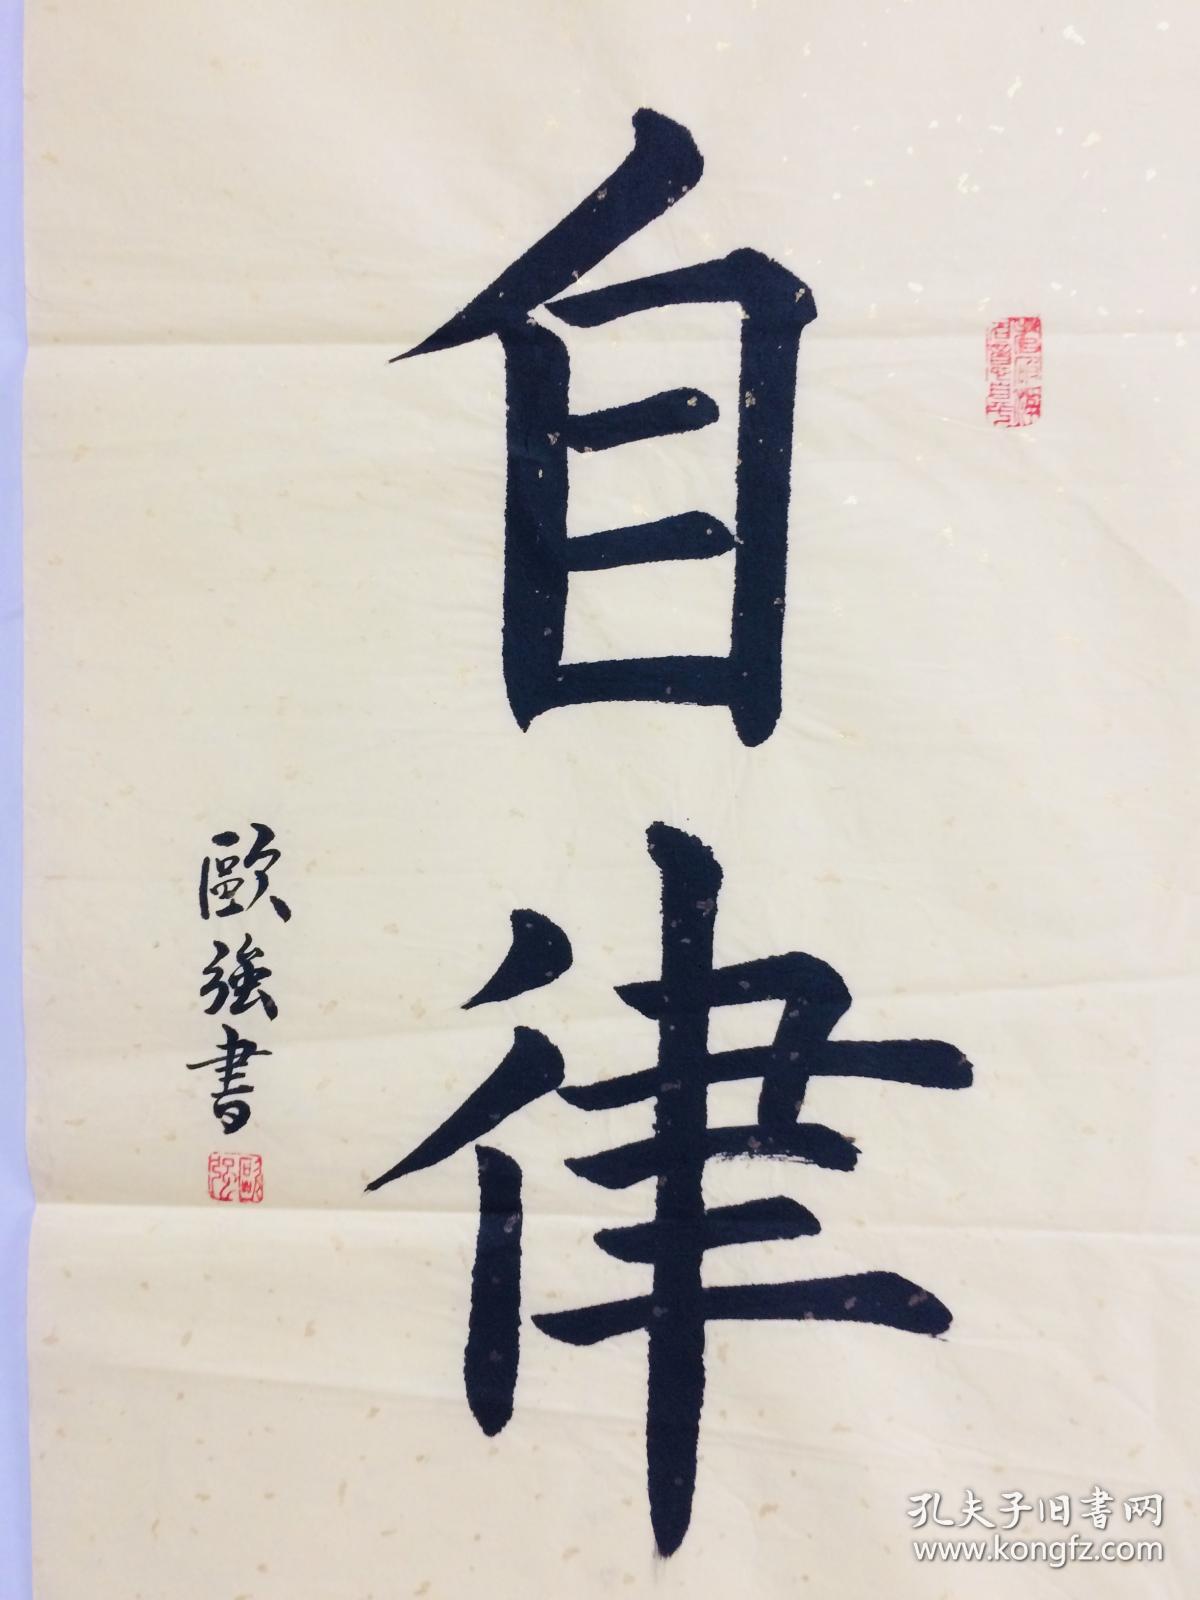 自律
歐強書
孔夫子旧書网
www.kongfz.com